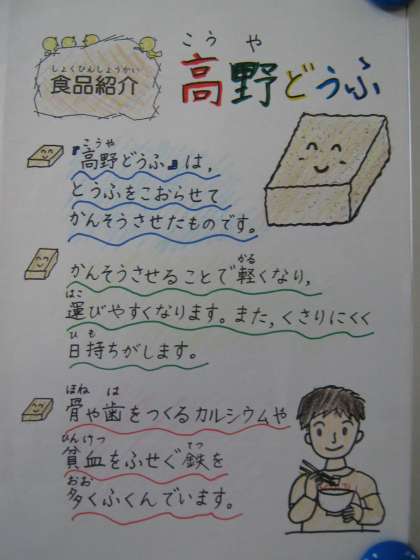 食品紹介
しょくひんしょうかい
高野どうふ
こうや
『高野どうふ』は,
こうや
とうふをこおらせて
かんそうさせたものです。
かんそうさせることで軽くなり,
かる
運びやすくなります。また,くさりにくく
はこ
日持ちがします。
ひも
骨や歯をつくるカルシウムや
ほね は
貧血をふせぐ鉄を
ひんけつ てつ
多くふくんでいます。
おお